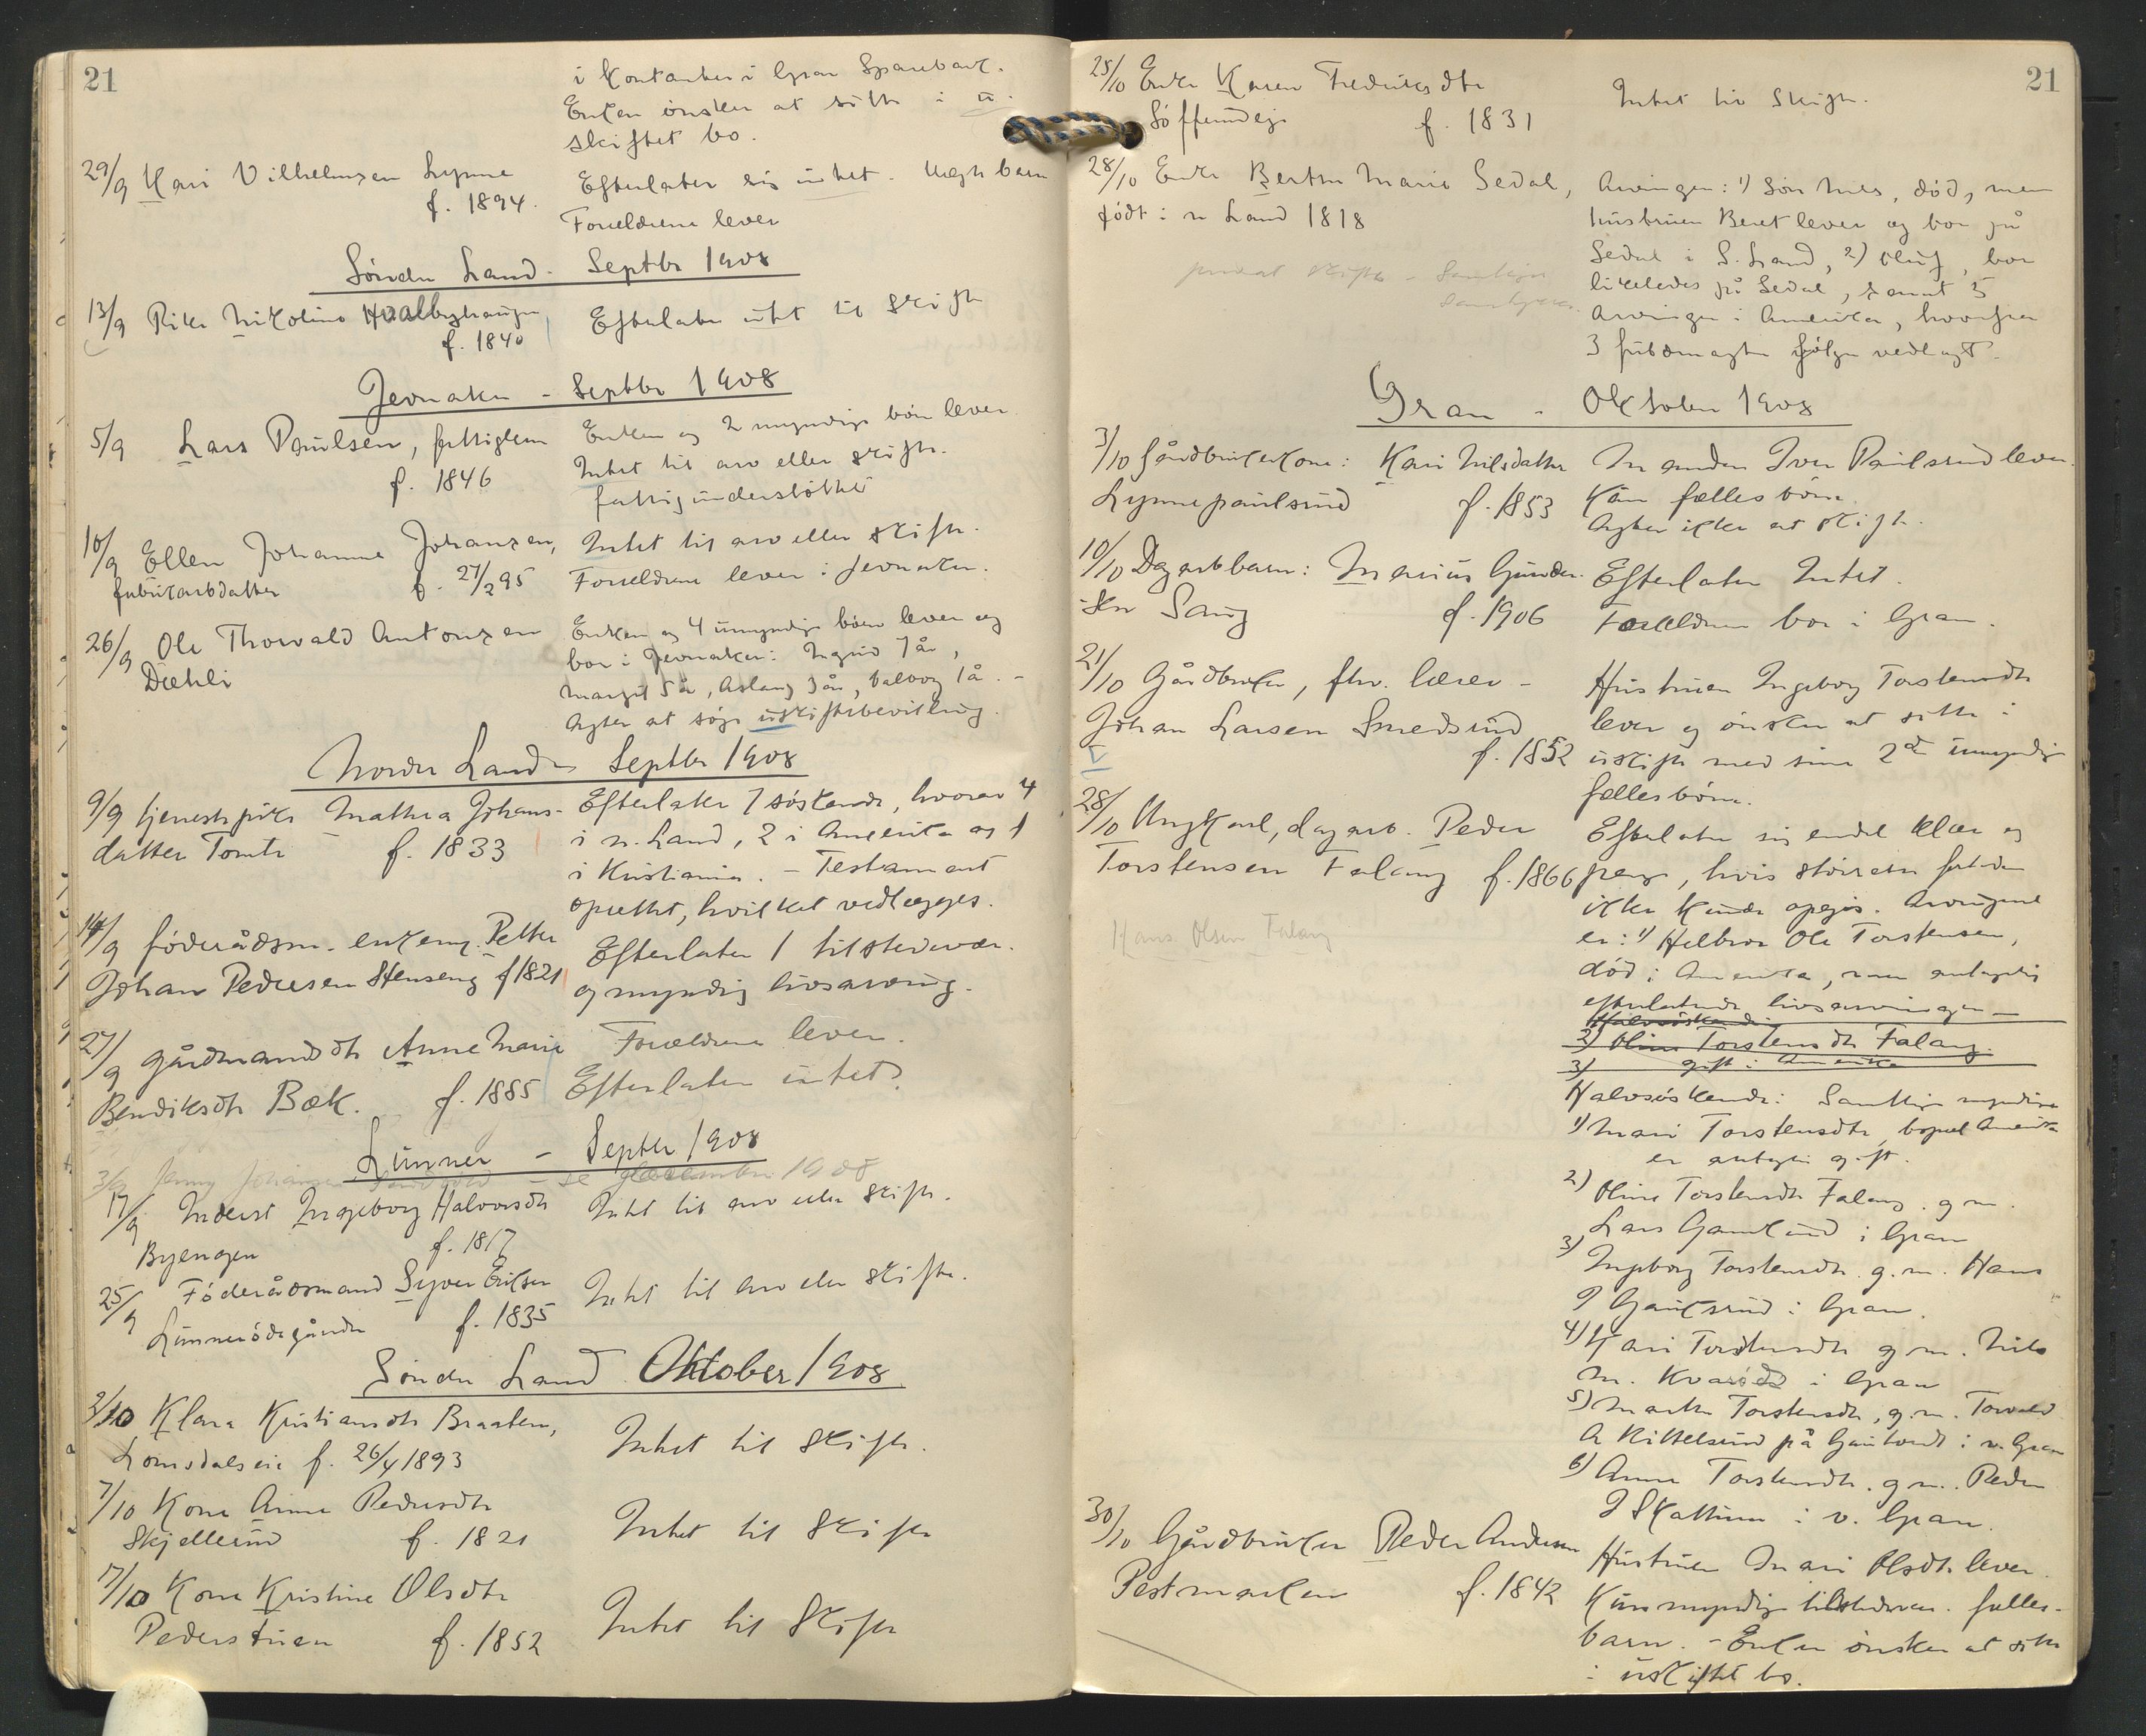 21
i Kontanter i Gran Sparebank.
Enken ønsker at sitte i u-
skiftet bo.
29/9 Kari Vilhelmsen Lynne
f. 1894.
Efterlater sig intet. Uegte barn
Forældrene lever
Søndre Land - Septbr 1908
13/9 Pike Nikoline Hvalbyhaugen
f. 1840
Efterlater intet til skifte
Jevnaker - Septbr 1908
5/9 Lars Paulsen, fattiglem
f. 1846
Enken og 2 myndige børn lever
Intet til arv eller skifte.
fattigunderstøttet
10/9 Ellen Johanne Johansen,
fabrikarbdatter f. 27/2 95
Intet til arv eller skifte.
Forældrene lever i Jevnaker.
26/9 Ole Thorvald Antonsen
Dæhli
Enken og 4 umyndige børn lever og
bor i Jevnaker: Ingrid 7 år,
Margit 5 år, Aslaug 3 år, Valborg 1 å. -
Agter at søge uskiftebevilling.
Nordre Land - Septbr 1908
9/9 tjenestepike Mathea Johans-
datter Tomte f. 1833
Efterlater 7 søskende, hvorav 4
i n. Land, 2 i Amerika og 1
i Kristiania. - Testament
oprettet, hvilket vedlægges.
14/9 føderådsm. enkem. Petter
Johan Pedersen Stenseng f 1821
Efterlater 1 tilstedevær.
og myndig livsarving.
27/9 gårdmandsdtr Anne Marie
Bendiksdtr Bæk. f. 1885
Forældrene lever.
Efterlater intet.
Lunner - Septbr 1908
3/9 Jenny Johansen - se december 1908
17/9 Inderst Ingeborg Halvorsdtr
Byengen f. 1817
Intet til arv eller skifte.
25/9 Føderådsmand Syver Eriksen
Lunnerødegården f. 1835
Intet til arv eller skifte.
Søndre Land Oktober 1908
2/10 Klara Kristiansdtr Braaten,
Lomsdalseie f. 26/4 1893
Intet til skifte.
7/10 Kone Anne Pedersdtr
Skjellerud f. 1821
Intet til skifte
17/10 Kone Kristine Olsdtr
Pederstuen f. 1852
Intet til skifte
21
25/10 Enke Karen Fredriksdtr
Søffeneie f. 1831
Intet til skifte.
28/10 Enke Berthe Marie Sedal,
født i n Land 1818
privat skifte - Samtlige
samtykker
Arvinger: 1) Søn Nils, død, men
hustruen Beret lever og bor på
Sedal i S. Land, 2) Oluf, bor
likeledes på Sedal, samt 5
arvinger i Amerika, hvorfra
3 fuldmagter følger vedlagt.
Gran - Oktober 1908
3/10 Gårdbrukerkone: Kari Nilsdatter
Lynnepaulsrud f. 1853
Manden Iver Paulsrud lever.
Kun fællesbørn.
Agter ikke at skifte.
10/10 Dagarbbarn: Marius Gunder-
sen Sang f. 1906
Efterlater Intet.
Forældrene bor i Gran.
21/10 Gårdbruker, fhv. lærer -
Johan Larsen Smedsrud
f. 1852
Hustruen Ingeborg Torstensdtr
lever og ønsker at sitte i
uskifte med sine 2de umyndige
fællesbørn.
28/10 Ungkarl, dagarb. Peder
Torstensen Falang f. 1866
Hans Olsen Falang
Efterlater sig endel klær og
penge, hvis størrelse fortiden
ikke kunde opgis. Arvingene
er: 1) Helbror Ole Torstensen,
død i Amerika, men antagelig
efterlatende livsarvinger -
Halvsøskende
2) Oline Torstensdtr Falang.
3) gift i Amerika
Halvsøskende: Samtlige myndige
1) Mari Torstensdtr, bopæl Amerika
er antagelig gift.
2) Oline Torstensdtr Falang. g. m.
Lars Gamlund i Gran
3) Ingeborg Torstensdtr. g. m. Hans
J Gauksrud i Gran.
4) Kari Torstensdtr g. m. Nils
M. i Gran
5) Marthe Torstensdtr, g. m. Torvald
A Kittelsrud på i v. Gran
6) Anne Torstensdtr. g. m. Peder
J Skattum i v. Gran.
30/10 Gårdbruker Peder Andersen
Pestmarken f. 1842
Hustruen Mari Olsdtr lever.
Kun myndige tilstedevær. fælles-
barn. - Enken ønsker at sitte
i uskiftet bo.